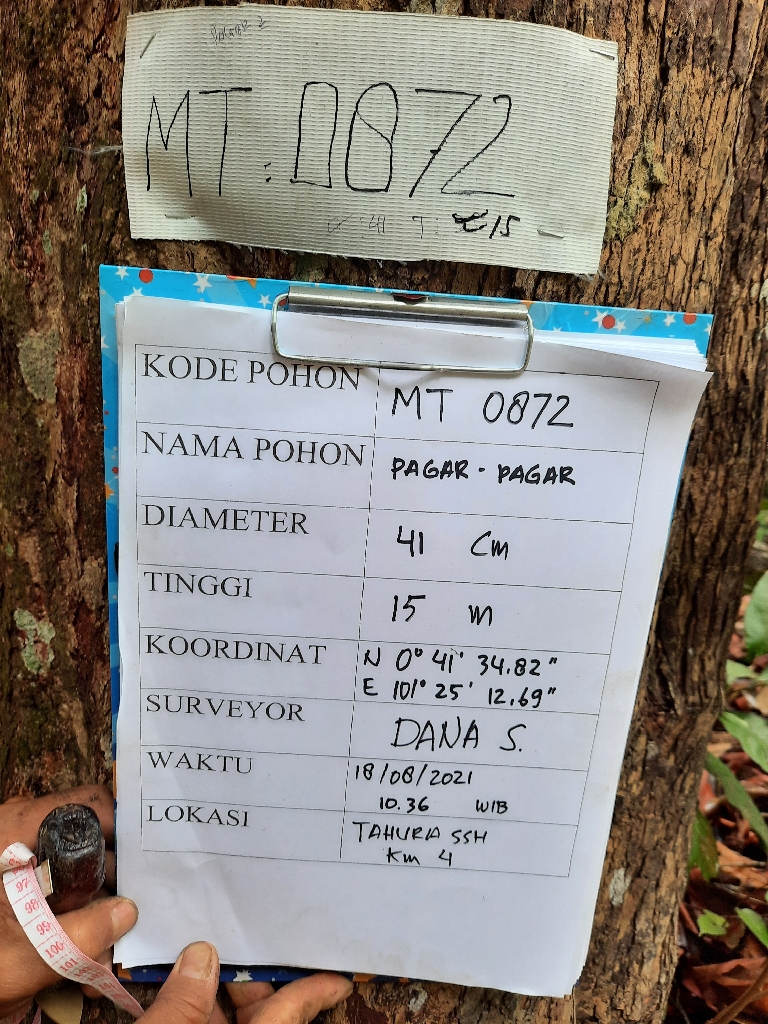 MT : 0872
41 T: 15
KODE POHON MT 0872
NAMA POHON PAGAR - PAGAR
DIAMETER 41 Cm
TINGGI 15 m
KOORDINAT N 0° 41' 34.82"
E 101° 25' 12.69"
SURVEYOR DANA S.
WAKTU 18/08/2021
10.36 WIB
LOKASI TAHURA SSH
Km 4
97
98
99
100
101